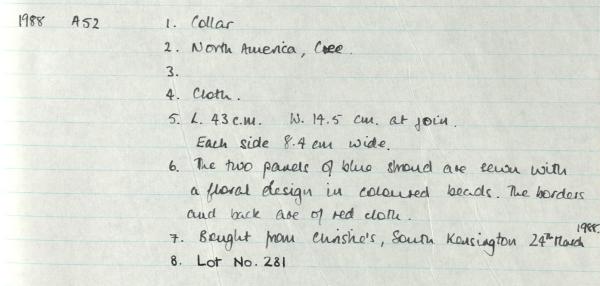 1988 A52 1. Collar
2. North America, Cree.
3.
4. Cloth.
5. L. 43 c.m. W. 14.5 cm. at join.
Each side 8.4 cm wide.
6. The two panels of blue stroud are sewn with
a floral design in coloured beads. The borders
and back are of red cloth.
7. Bought from Christie's, South Kensington 24th March 1988.
8. Lot No. 281